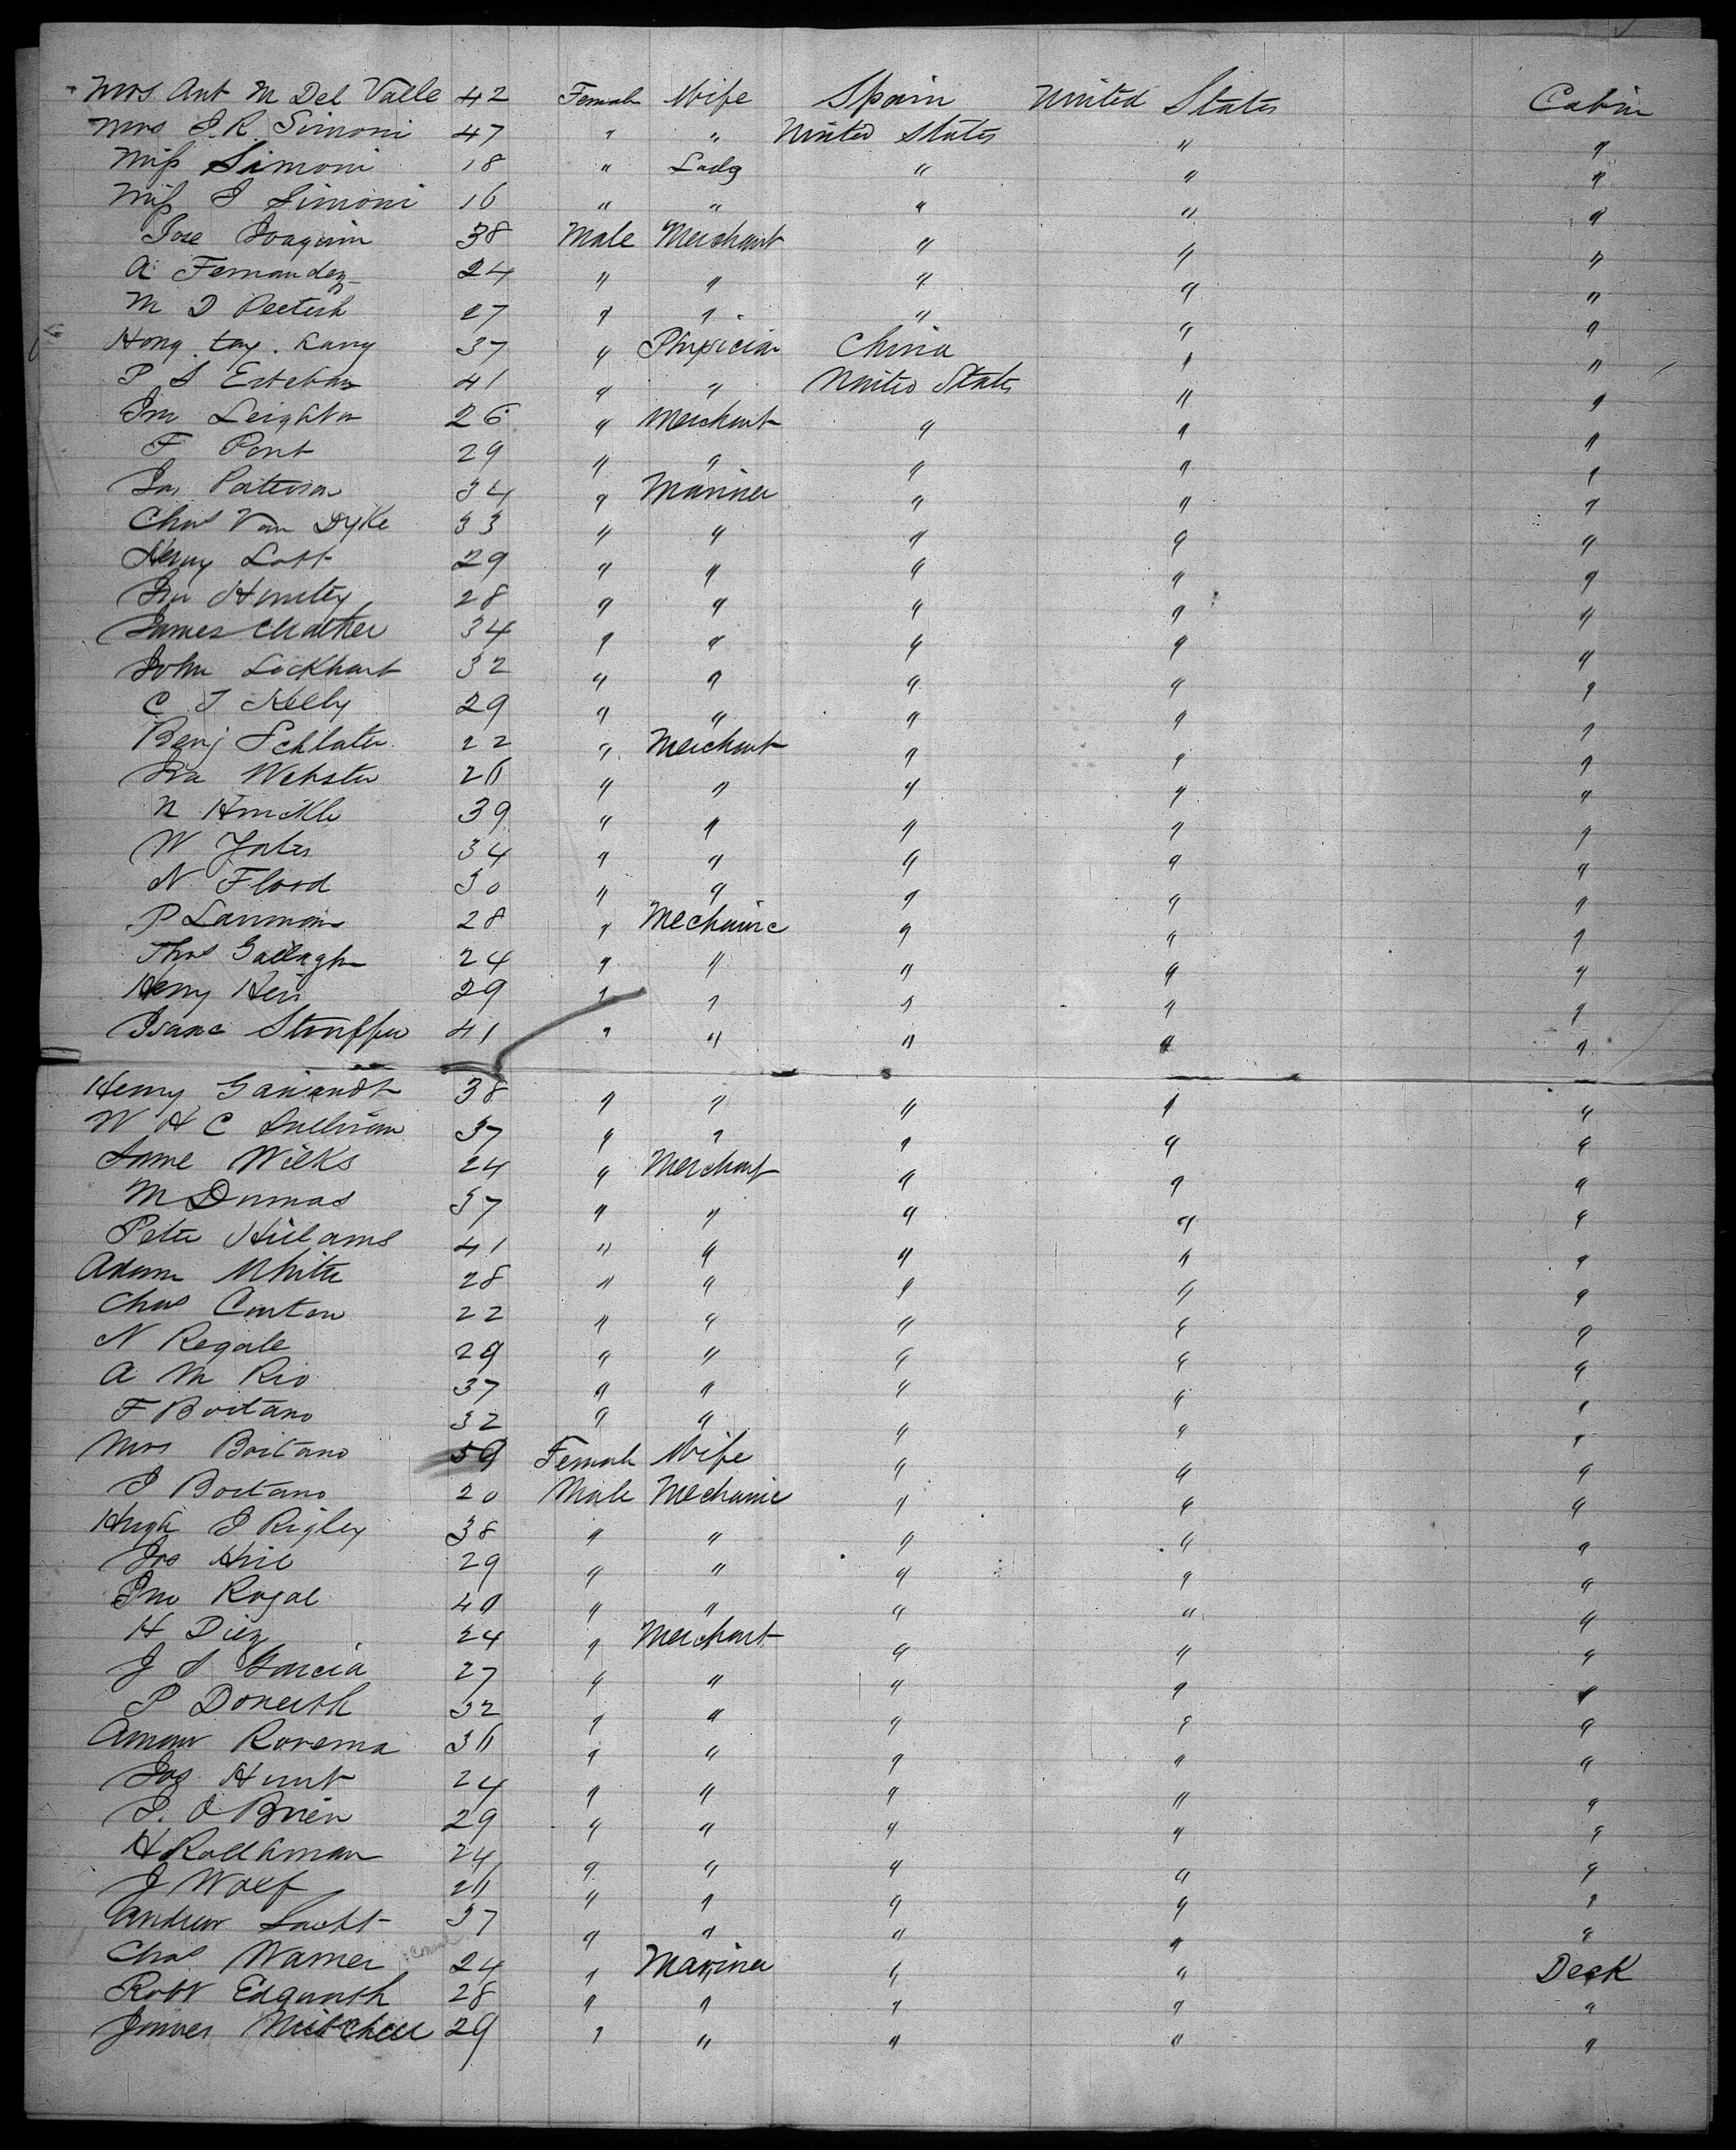 Mrs Ant M Del Valle 42 Female Wife Spain United States Cabin
Mrs J. R. Simoni 47 " " United States " "
Miss Simoni 18 " Lady " " "
Miss J Simoni 16 " " " " "
Jose Joaquim 38 Male Merchant " " "
A Fernandez 24 " " " " "
M D 27 " " " " "
Hong tay. Kang 37 " Physician China " "
P S Esteban 41 " " United States " "
Jno Leighton 26 " Merchant " " "
F Pont 29 " " " " "
Jas Paterson 34 " Mariner " " "
Chas Van Dyke 33 " " " " "
Henry Lott 29 " " " " "
Jno Huntey 28 " " " " "
James Mather 34 " " " " "
John Lockhart 32 " " " " "
C T Kelly 29 " " " " "
Benj Schlater 22 " Merchant " " "
Ira Webster 26 " " " " "
N Hinckle 39 " " " " "
W Yates 34 " " " " "
N Flood 30 " " " " "
P Lamman 28 " Mechanic " " "
Thos Gallagh 24 " " " " "
Henry Heis 29 " " " " "
Isaac Stouffer 41 " " " " "
Henry 38 " " " " "
W H C Sullivan 37 " " " " "
Wilks 24 " Merchant " " "
M Dumas 37 " " " " "
Peter Williams 41 " " " " "
Adam White 28 " " " " "
Chas Canton 22 " " " " "
N Regale 29 " " " " "
A M Rio 37 " " " " "
F Boitano 32 " " " " "
Mrs Boitano 59 Female Wife " " "
J Boitano 20 Male Mechanic " " "
Hugh J Rigley 38 " " " " "
Jos Hill 29 " " " " "
Jno Rogal 40 " " " " "
H Diez 24 " Merchant " " "
J S Garcia 27 " " " " "
P 32 " " " " "
Rovema 36 " " " " "
Jos Hunt 24 " " " " "
J. O Brien 29 " " " " "
H Rollhman 24 " " " " "
J Wolf 26 " " " " "
Andrew 37 " " " " "
Chas Warner 24 " Mariner " " Deck
Robt 28 " " " " "
James Mitchell 29 " " " " "